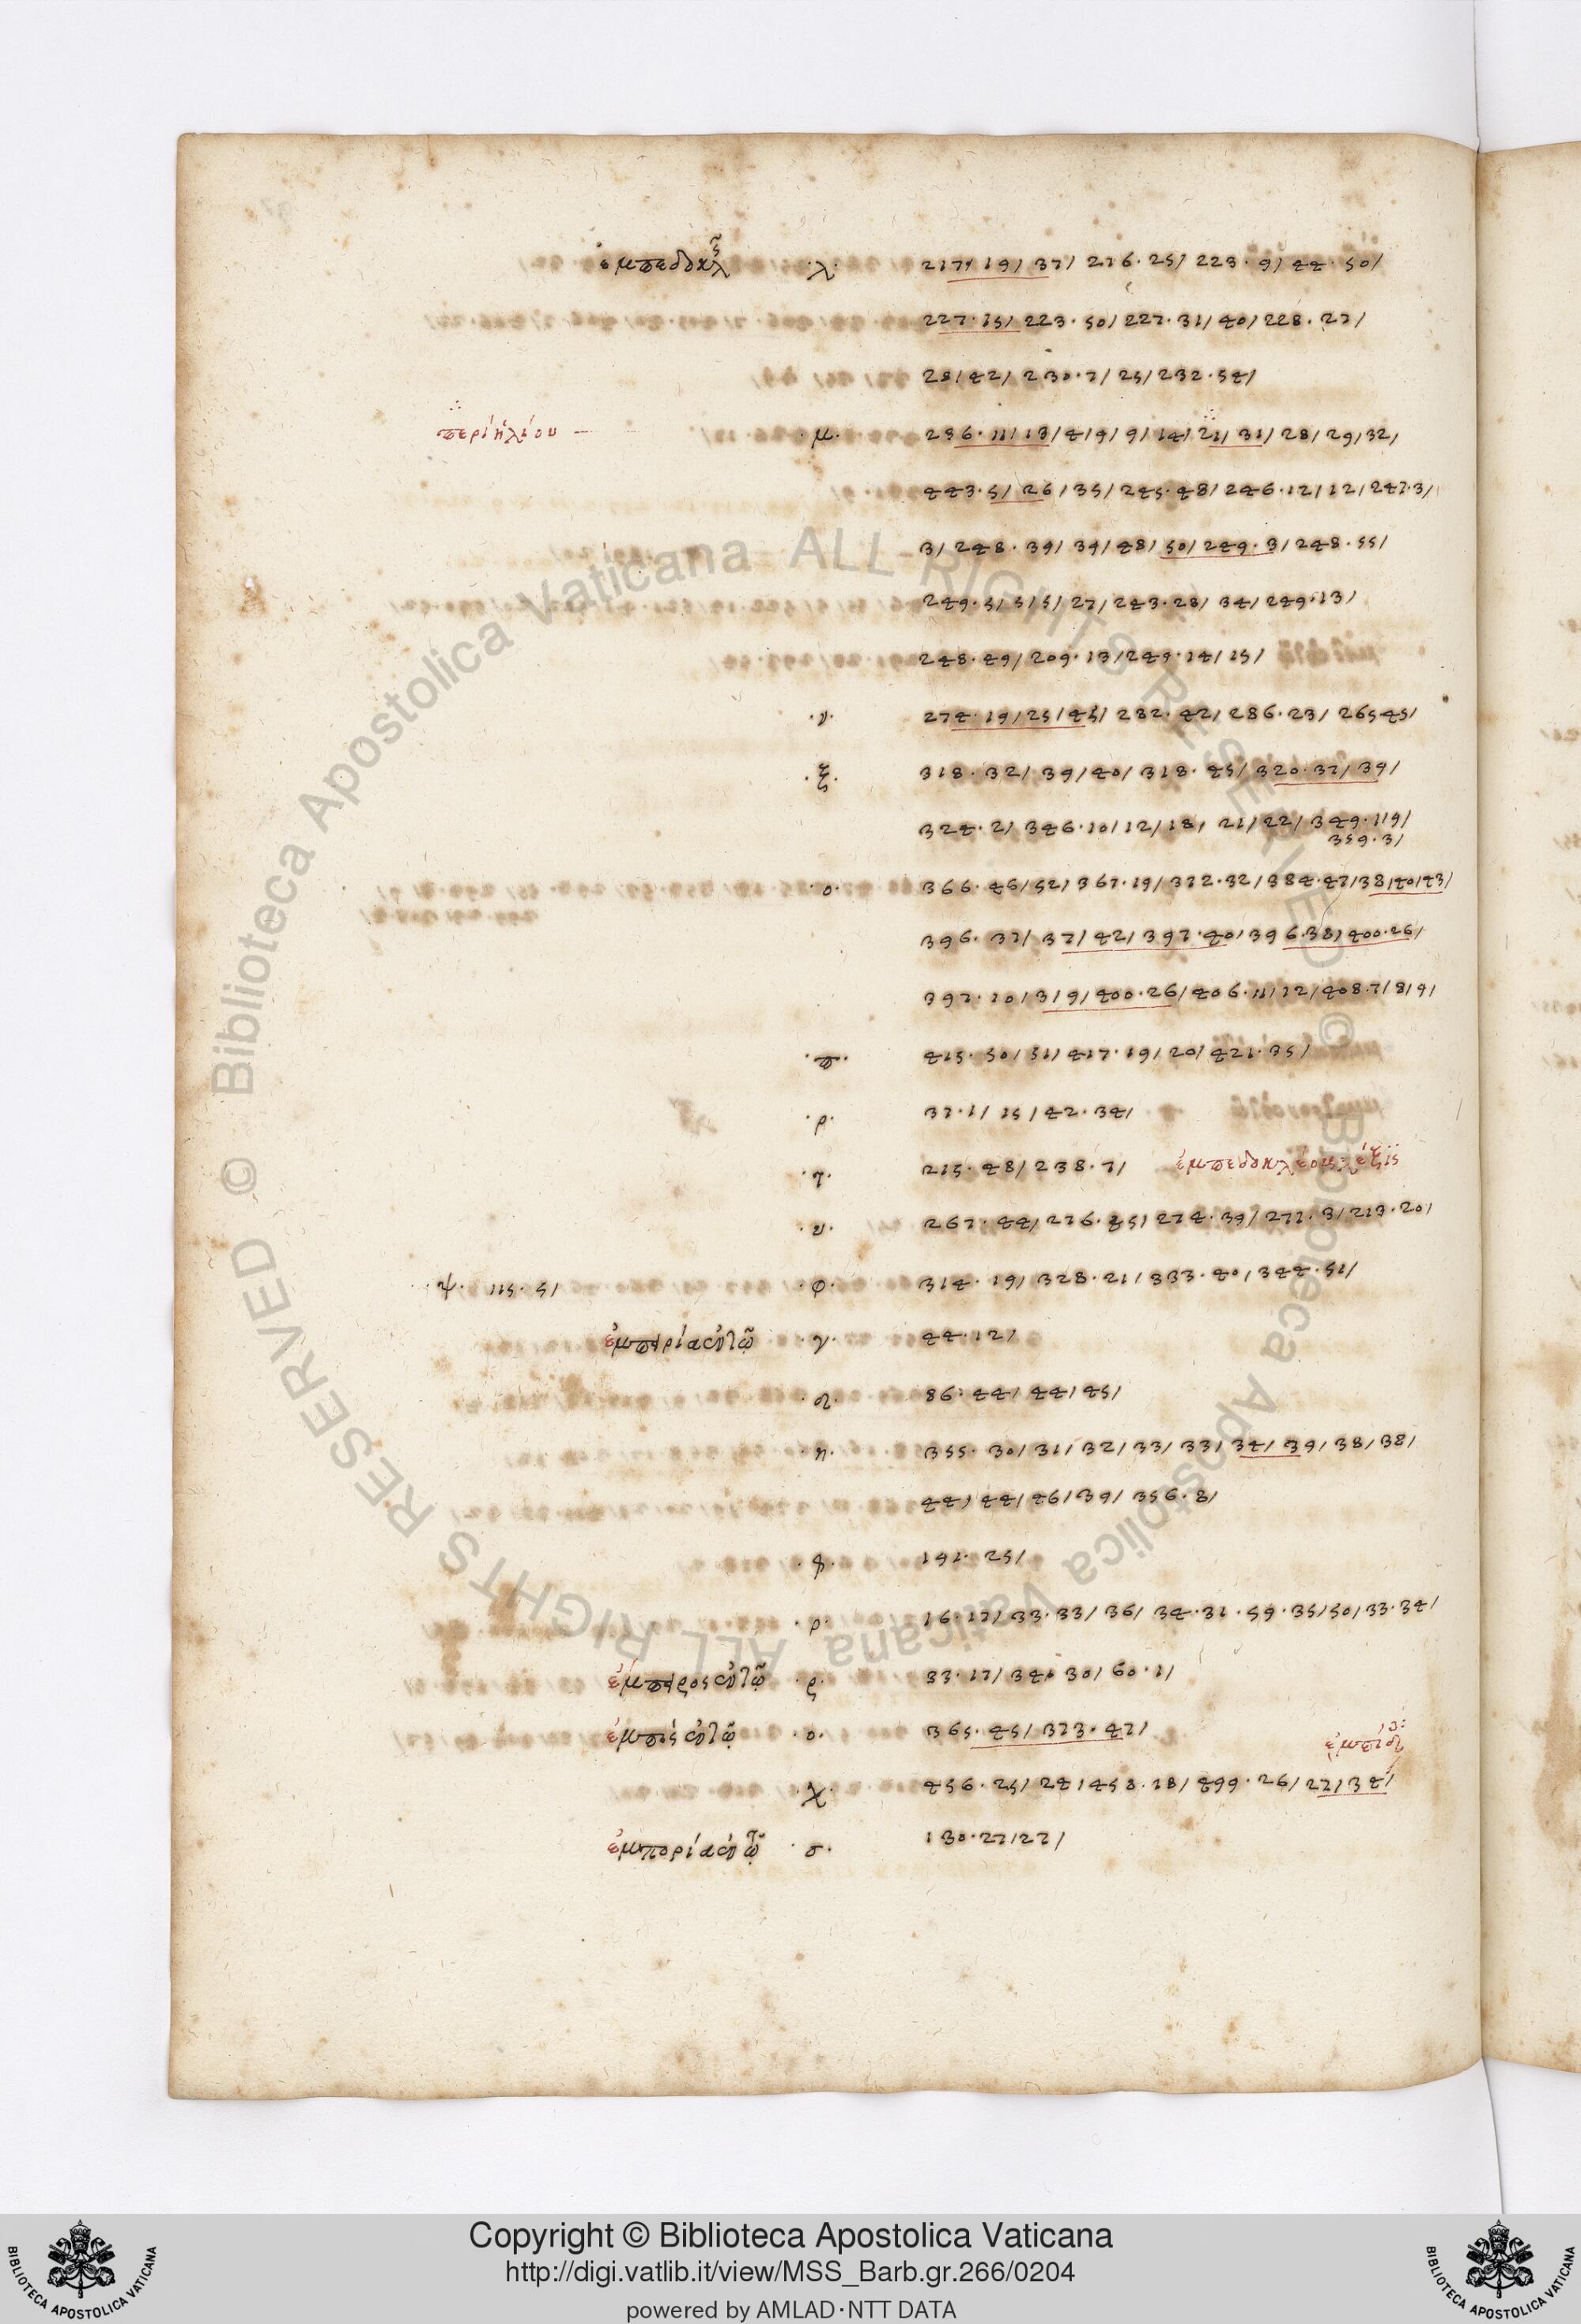 ἐμπεδοκλ ·λ· 217/ 19/ 37/ 216· 25/ 223· 9/ 44· 50/
227· 15/ 223· 50/ 227· 31/ 40/ 228· 27/
28/ 42/ 230· 7/ 25/ 232· 54/
περὶ ἡλίου — ·μ· 236· 11/ 13/ 4/ 9/ 9/ 14/ 21/ 31/ 28/ 29/ 32/
443· 5/ 26/ 35/ 245· 48/ 246· 12/ 12/ 247· 3/
3/ 248· 39/ 39/ 48/ 50/ 249· 3/ 248· 55/
249· 5/ 5/ 5/ 27/ 243· 28/ 34/ 249· 13/
248· 49/ 209· 13/ 249· 14/ 15/
·ν· 274· 19/ 25/ 45/ 282· 42/ 286· 23/ 265 45/
·ξ· 318· 32/ 39/ 40/ 318· 45/ 320· 37/ 39/
324· 2/ 346· 10/ 12/ 18/ 21/ 22/ 349· 119/
359· 3/
·ο· 366· 46/ 52/ 367· 19/ 372· 32/ 384· 47/ 38/ 40/ 43/
396· 37/ 37/ 42/ 397· 40/ 396· 38/ 400· 26/
397· 10/ 3/ 9/ 400· 26/ 406· 11/ 12/ 408· 7/ 8/ 9/
·π· 415· 50/ 51/ 417· 19/ 20/ 421· 35/
·ρ· 37· 1/ 15/ 42· 34/
·τ· 215· 48/ 238· 7/ ἐμπεδοκλέους λέξις
·υ· 267· 44/ 276· 45/ 274· 39/ 277· 3/ 213· 20/
·ψ· 115· 5/ ·φ· 314· 19/ 328· 21/ 333· 40/ 344· 51/
·γ· 44· 12/
86· 44/ 44/ 45/
·η· 355· 30/ 31/ 32/ 33/ 33/ 34/ 39/ 38/ 38/
44/ 44/ 46/ 39/ 356· 8/
191· 25/
·ρ· 16· 17/ 33· 33/ 36/ 34· 31· 59· 35/ 50/ 33· 34/
33· 17/ 34· 30/ 60· 1/
·ο· 365· 45/ 373· 47/
·χ· 456· 25/ 24/ 458· 18/ 499· 26/ 27/ 34/
·σ· 130· 27/ 27/
© Biblioteca Apostolica Vaticana ALL RIGHTS RESERVED © Biblioteca Apostolica Vaticana ALL RIGHTS RESERVED
Copyright © Biblioteca Apostolica Vaticana
http://digi.vatlib.it/view/MSS_Barb.gr.266/0204
powered by AMLAD·NTT DATA
BIBLIOTECA APOSTOLICA VATICANA
BIBLIOTECA APOSTOLICA VATICANA